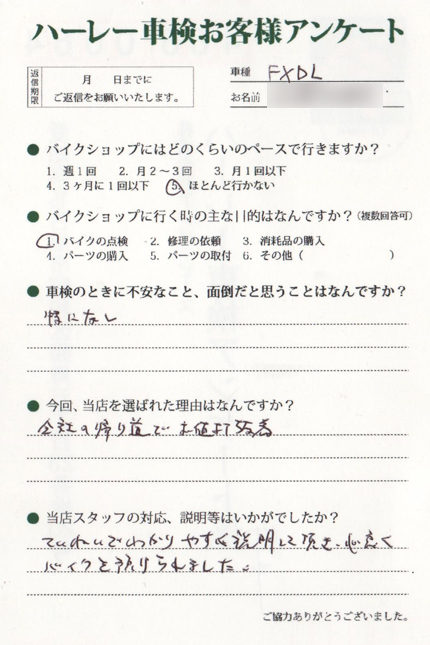 ハーレー車検お客様アンケート
返信期限
月　日までに
ご返信をお願いいたします。
車種 FXDL
お名前
● バイクショップにはどのくらいのペースで行きますか？
1. 週1回　2. 月2～3回　3. 月1回以下
4. 3ヶ月に1回以下　5. ほとんど行かない
● バイクショップに行く時の主な目的はなんですか？（複数回答可）
1. バイクの点検　2. 修理の依頼　3. 消耗品の購入
4. パーツの購入　5. パーツの取付　6. その他（　　　　　　）
● 車検のときに不安なこと、面倒だと思うことはなんですか？
特になし
● 今回、当店を選ばれた理由はなんですか？
会社の帰り道で お値
● 当店スタッフの対応、説明等はいかがでしたか？
ていねいでわかりやすく説明して頂き、心良く
バイクを預けられました。
ご協力ありがとうございました。